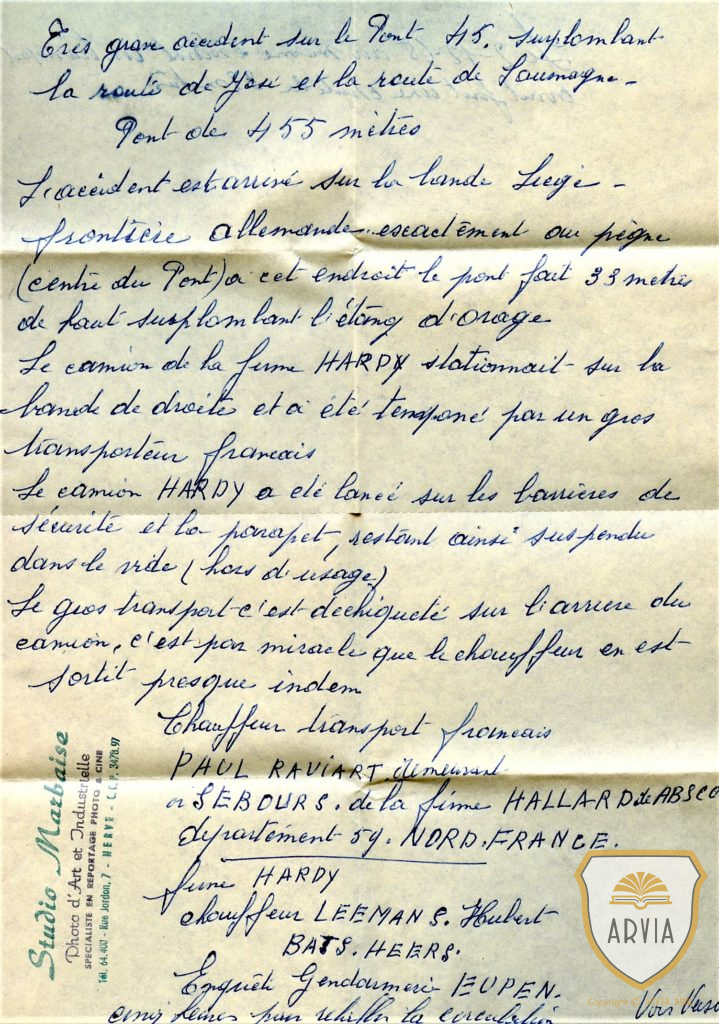 Très grave accident sur le Pont 45. surplombant
la route de José et la route de Soumagne -
Pont de 455 mètres
L'accident est arrivé sur la bande Liege -
frontière allemande. exactement au pègne
(centre du Pont) a cet endroit le pont fait 33 metres
de haut surplombant l'étang d'orage
Le camion de la firme HARDY stationnait sur la
bande de droite et a été temponé par un gros
transporteur francais
Le camion HARDY a été lancé sur les barrières de
sécurité et la parapet, restant ainsi suspendu
dans le vide (hors d'usage)
Le gros transport c'est dechiqueté sur l'arriere du
camion, c'est par miracle que le chauffeur en est
sortit presque indem
Chauffeur transport francais
PAUL RAVIART. demeurant
a SEBOURS. de la firme HALLARD de ABSCO
departément 59. NORD. FRANCE.
firme HARDY
chauffeur LEEMANS. Hubert
BATS. HEERS.
Enquête Gendarmerie EUPEN.
cinq heures pour rétablir la circulation
Voir Verso
Studio Marbaise
Photo d'Art et Industrielle
SPECIALISTE EN REPORTAGE PHOTO & CINE
Tél. 64.400 - Rue Jardon, 7 - HERVE - C.C.P. 3478.97
ARVIA